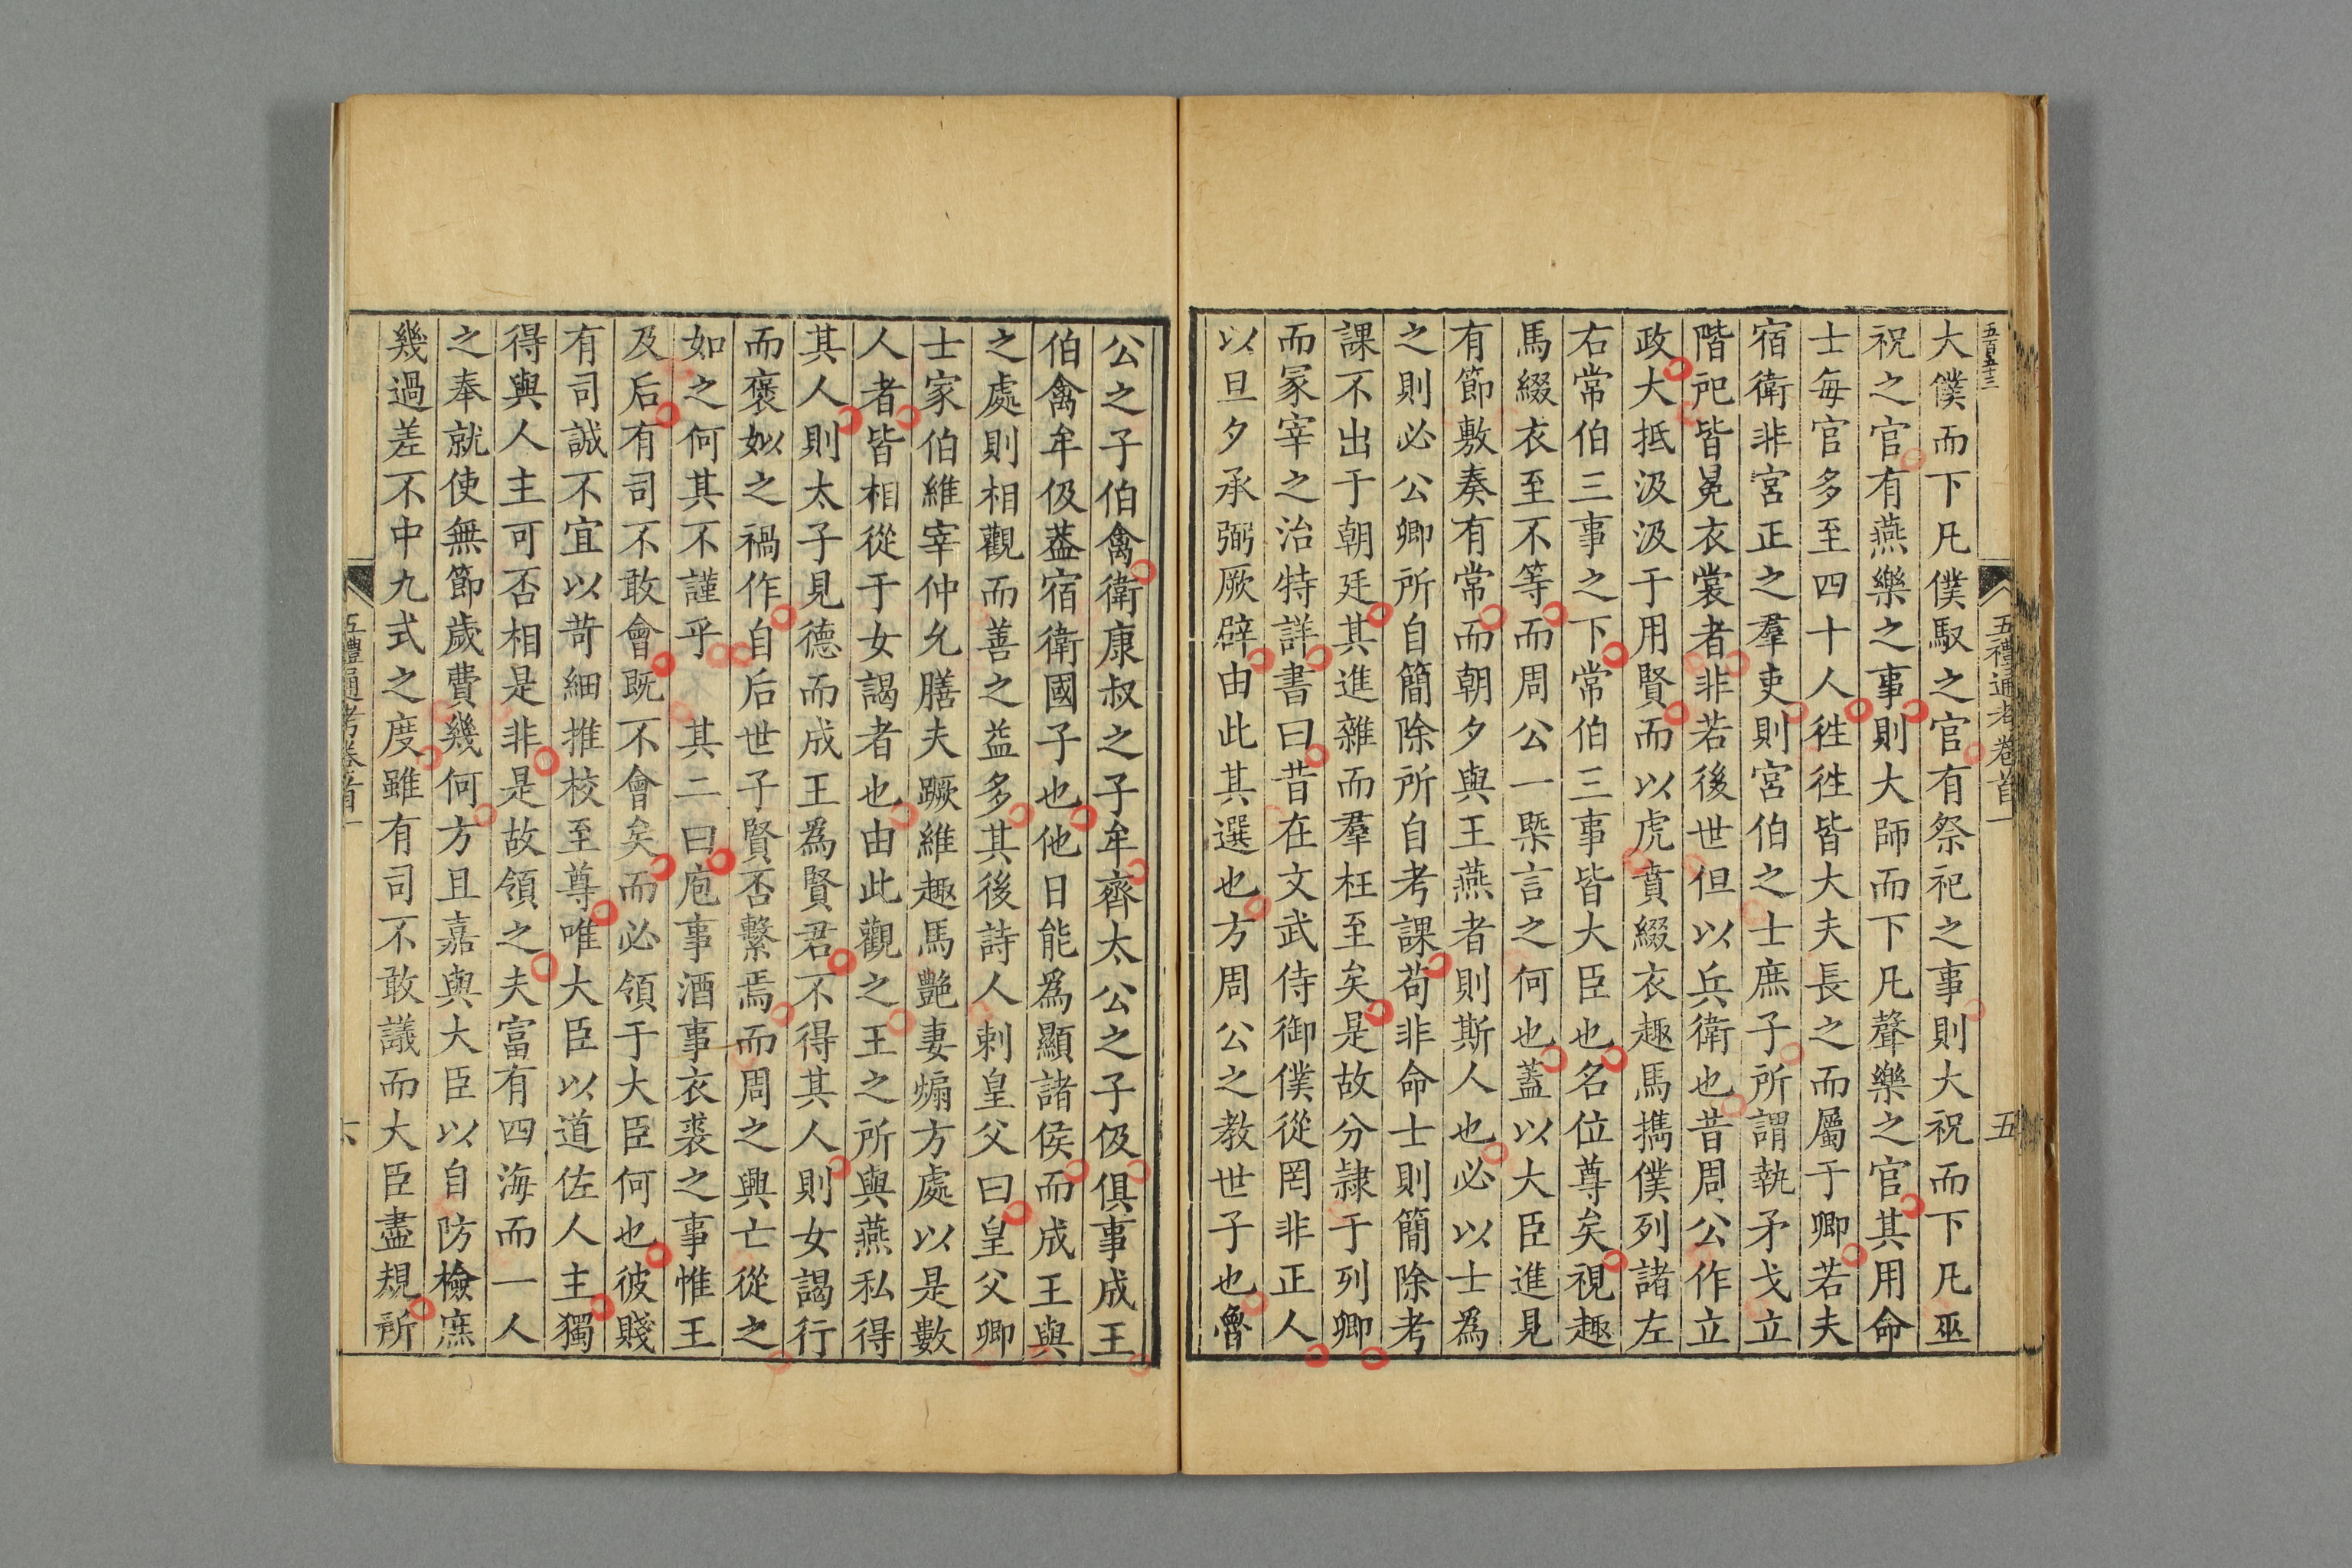 五百五十三
五禮通考卷首一
五
大僕而下凡僕馭之官有祭祀之事則大祝而下凡巫
祝之官有燕樂之事則大師而下凡聲樂之官其用命
士每官多至四十人徃徃皆大夫長之而屬于卿若夫
宿衛非宮正之羣吏則宮伯之士庶子所謂執矛戈立
階戺皆冕衣裳者非若後世但以兵衛也昔周公作立
政大抵汲汲于用賢而以虎賁綴衣趣馬攜僕列諸左
右常伯三事之下常伯三事皆大臣也名位尊矣視趣
馬綴衣至不等而周公一槩言之何也蓋以大臣進見
有節敷奏有常而朝夕與王燕者則斯人也必以士爲
之則必公卿所自簡除所自考課苟非命士則簡除考
課不出于朝廷其進雜而羣枉至矣是故分隷于列卿
而冡宰之治特詳書曰昔在文武侍御僕從罔非正人
以旦夕承弼厥辟由此其選也方周公之教世子也魯
公之子伯禽衛康叔之子牟齊太公之子伋俱事成王
伯禽牟伋葢宿衛國子也他日能爲顯諸侯而成王與
之處則相觀而善之益多其後詩人刺皇父曰皇父卿
士家伯維宰仲允膳夫蹶維趣馬豔妻煽方處以是數
人者皆相從于女謁者也由此觀之王之所與燕私得
其人則太子見德而成王爲賢君不得其人則女謁行
而褒姒之禍作自后世子賢否繫焉而周之興亡從之
如之何其不謹乎　其二曰庖事酒事衣裘之事惟王
及后有司不敢會既不會矣而必領于大臣何也彼賤
有司誠不宜以苛細推校至尊唯大臣以道佐人主獨
得與人主可否相是非是故領之夫富有四海而一人
之奉就使無節歲費幾何方且嘉與大臣以自防檢庶
幾過差不中九式之度雖有司不敢議而大臣盡規所
五禮通考卷首一
六